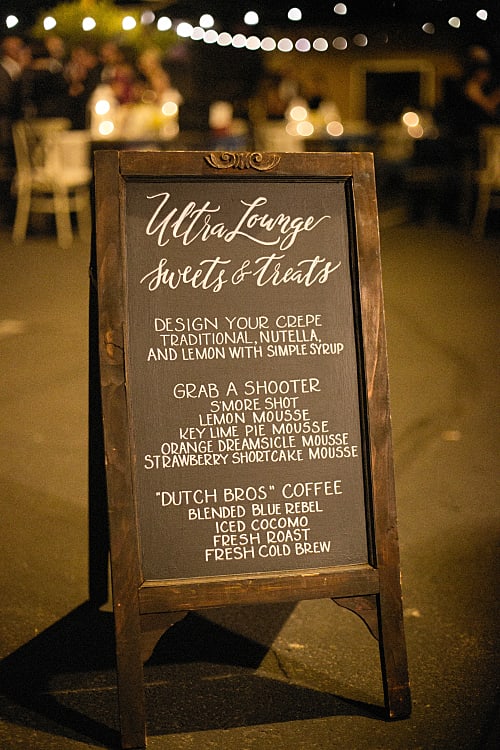 Ultra Lounge
Sweets & Treats
DESIGN YOUR CREPE
TRADITIONAL, NUTELLA,
AND LEMON WITH SIMPLE SYRUP
GRAB A SHOOTER
S'MORE SHOT
LEMON MOUSSE
KEY LIME PIE MOUSSE
ORANGE DREAMSICLE MOUSSE
STRAWBERRY SHORTCAKE MOUSSE
"DUTCH BROS" COFFEE
BLENDED BLUE REBEL
ICED COCOMO
FRESH ROAST
FRESH COLD BREW